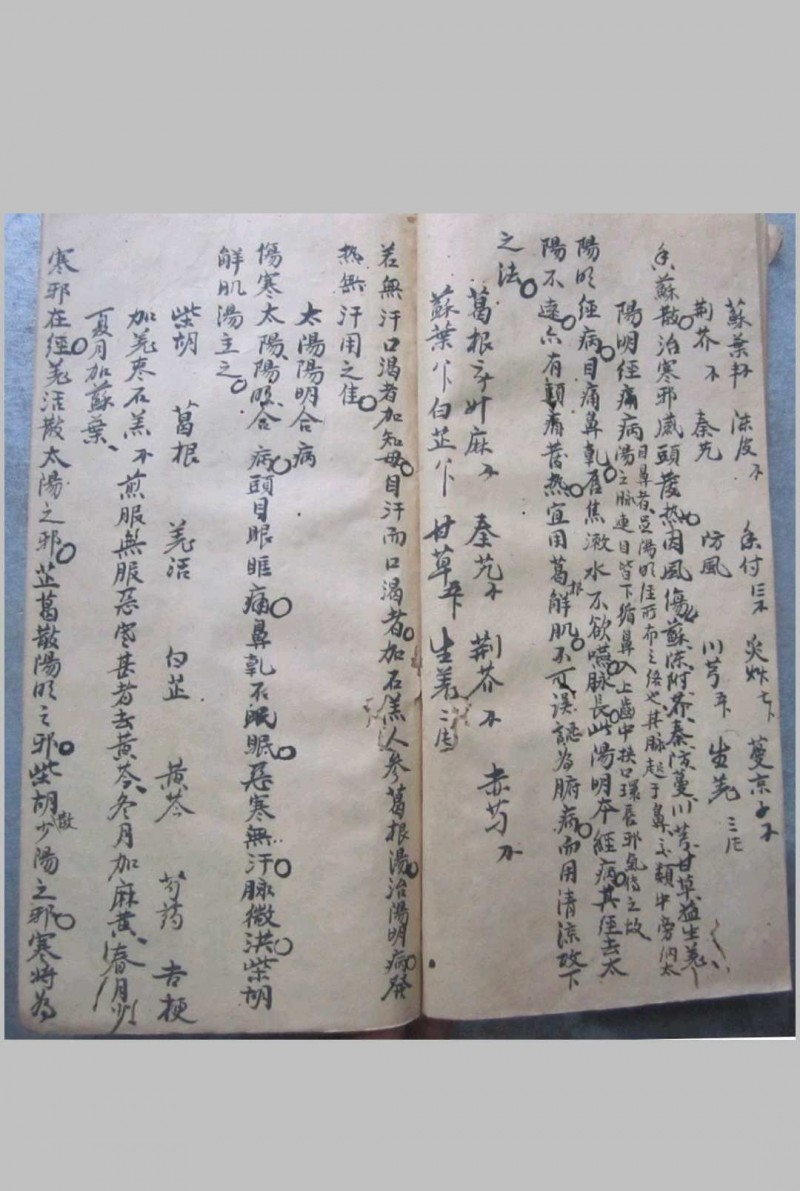 蘇葉 陳皮 香付 炙草 蔓京子
荆芥 秦艽 防風 川芎 生姜
香蘇散治寒邪感頭發熱因風傷蘇陳附荆秦防蔓川芎甘草益生姜
陽明經痛病
目鼻者是陽明經所布之絡也其脉起于鼻交頞中旁納太
陽之脉連目眥下循鼻入上齒中挾口環唇邪氣傳之故
陽明經病目痛鼻乾唇焦漱水不欲嚥脉長此陽明本經病其經去太
陽不遠亦有頭痛發熱宜用葛根解肌不可誤認為腑病而用清凉攻下
之法
葛根 升麻 秦艽 荆芥 赤芍
蘇葉 白芷 甘草 生姜
若無汗口渴者加知母自汗而口渴者加石羔人參葛根湯治陽明病發
热無汗用之佳
太陽陽明合病
傷寒太陽陽明合病頭目眼眶痛鼻乾不眠惡寒無汗脉微洪柴胡
解肌湯主之
柴胡 葛根 羌活 白芷 黄芩 芍葯 吉梗
加羌枣石羔煎服無服惡寒甚者去黄芩冬月加麻黄春月少
夏月加蘇葉
寒邪在經羌活散太陽之邪芷葛散陽明之邪柴胡散少陽之邪寒将為